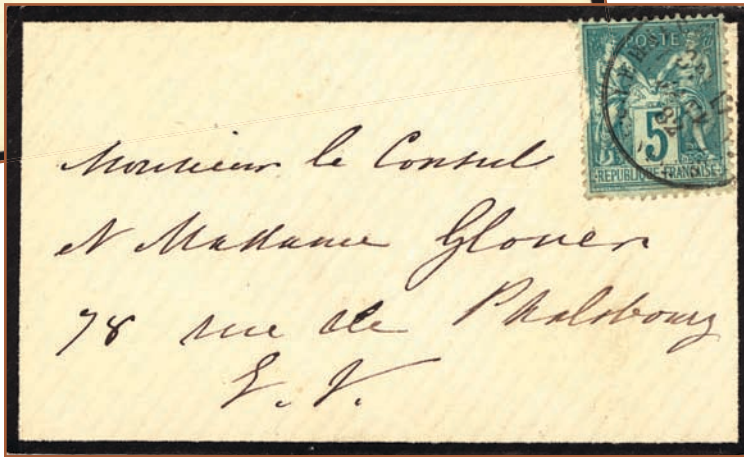 POSTES
5
REPUBLIQUE FRANÇAISE
82
Monsieur le Consul
et Madame Glover
78 rue de Phalsbourg
E. V.